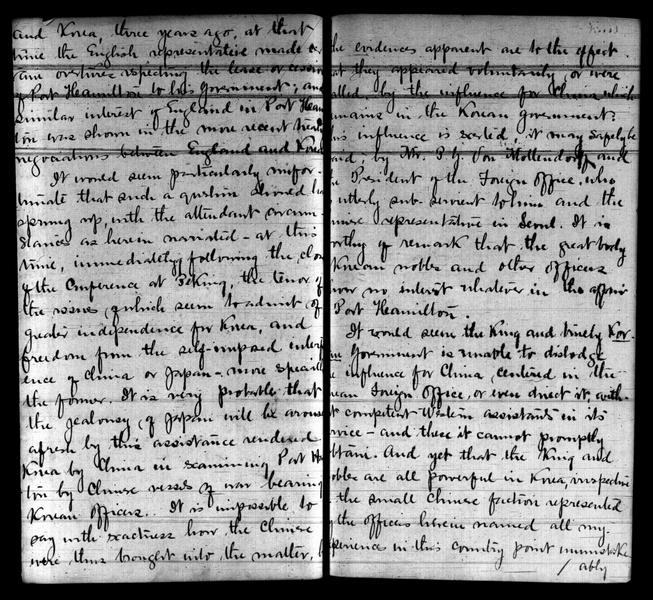 and Korea, three years ago, at that
time the English representative made
overtures respecting the lease or
of Port Hamilton to his government; and
similar interest of England in Port
was shown in the more recent
negociations between England and
It would seem particularly
that such a question should
spring up, with the attendant
stances as herein narrated - at this
time, immediately following the
of the Conference at Peking, the tenor of
the issues of which seem to admit of
greater independence for Korea, and
freedom from the self-imposed
of China or Japan - more
the former. It is very probable that
the jealousy of Japan will be
afresh by this assistance rendered
Korea by China in examining Port
by Chinese vessels of war bearing
Korean officers. It is impossible to
say with exactness how the Chinese
were thus brought into the matter,
evidences apparent are to the effect
they appeared voluntarily, or were
by the influence for China which
in the Korean government.
influence is seated, it may safely be
by Mr. P. G. Von Mollendorff and
President of the Foreign Office, who
utterly sub-servient to him and the
representative in Seoul. It is
of remark that the great body
Korean nobles and other officers
no interest whatever in the affair
Port Hamilton.
It would seem the King and
Government is unable to dislodge
influence for China, centered in the
Foreign Office, or even direct it, with-
competent Western assistants in its
- and these it cannot promptly
And yet that the King and
nobles are all powerful in Korea, irrespective
the small Chinese faction represented
the officers herein named all my
in this country point unmistak-
/ ably